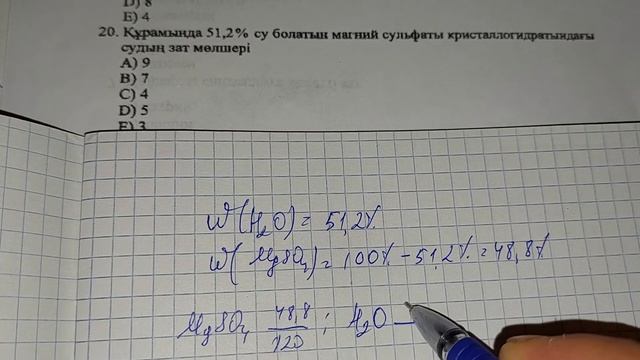 D) 8
E) 4
20. Құрамында 51,2% су болатын магний сульфаты кристаллогидратындағы
судың зат мөлшері
A) 9
B) 7
C) 4
D) 5
E) 3
W(H₂O) = 51,2%
W(MgSO₄) = 100% - 51,2% = 48,8%
MgSO₄ 48,8/120 ; H₂O —